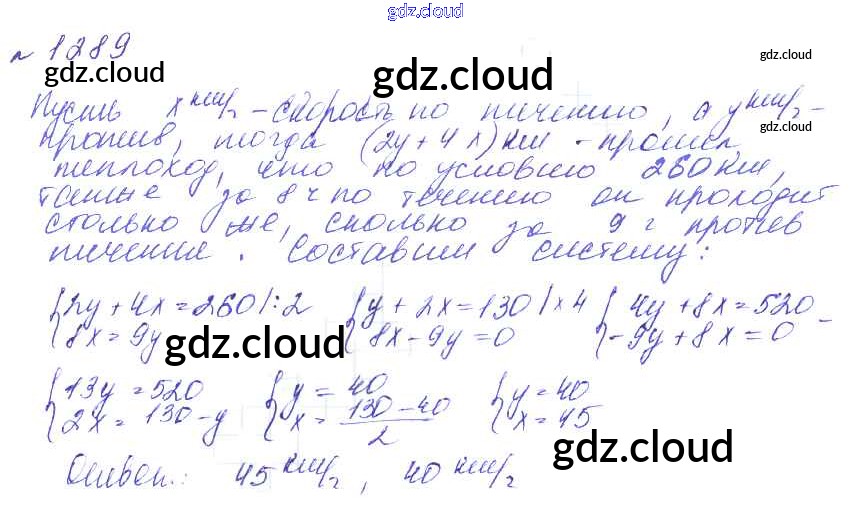 gdz.cloud
№ 1289
gdz.cloud gdz.cloud gdz.cloud
Пусть x км/ч - скорость по течению, а y км/ч -
против, тогда (2y + 4x) км - прошел gdz.cloud
теплоход, что по условию 260 км,
также за 8 ч по течению он проходит
столько же, сколько за 9 ч против
течение. Составим систему:
{2y + 4x = 260 |:2 {y + 2x = 130 |×4 {4y + 8x = 520
{8x = 9y {8x - 9y = 0 {-9y + 8x = 0 -
gdz.cloud gdz.cloud
{13y = 520 {y = 40 {y = 40
{2x = 130 - y {x = (130 - 40)/2 {x = 45
gdz.cloud
Ответ: 45 км/ч, 40 км/ч